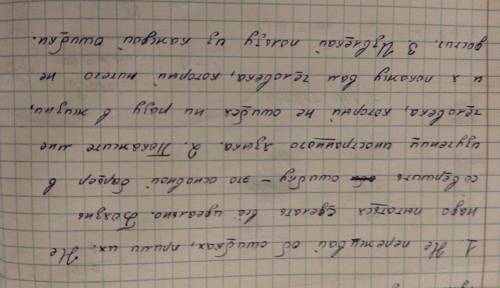 1. Не переживай об ошибках, прими их. Не
надо пытаться сделать всё идеально. Боязнь
совершить ошибку - это основной барьер в
изучении иностранного языка. 2. Покажите мне
человека, который не ошибся ни разу в жизни,
и я покажу вам человека, который ничего не
достиг. 3. Извлекай пользу из каждой ошибки.